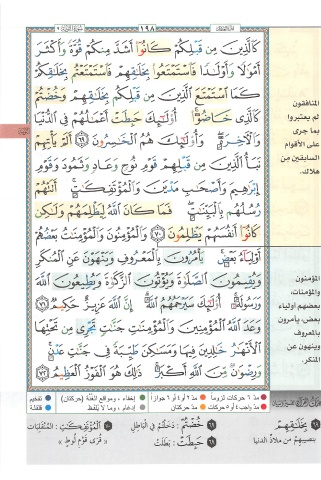 سورة التوبة ٩
١٩٨
كَٱلَّذِينَ مِن قَبْلِكُمْ كَانُوٓا۟ أَشَدَّ مِنكُمْ قُوَّةً وَأَكْثَرَ
أَمْوَٰلًا وَأَوْلَٰدًا فَٱسْتَمْتَعُوا۟ بِخَلَٰقِهِمْ فَٱسْتَمْتَعْتُم بِخَلَٰقِكُمْ
كَمَا ٱسْتَمْتَعَ ٱلَّذِينَ مِن قَبْلِكُم بِخَلَٰقِهِمْ وَخُضْتُمْ
كَٱلَّذِى خَاضُوٓا۟ أُو۟لَٰٓئِكَ حَبِطَتْ أَعْمَٰلُهُمْ فِى ٱلدُّنْيَا
وَٱلْءَاخِرَةِ وَأُو۟لَٰٓئِكَ هُمُ ٱلْخَٰسِرُونَ ٦٩ أَلَمْ يَأْتِهِمْ
نَبَأُ ٱلَّذِينَ مِن قَبْلِهِمْ قَوْمِ نُوحٍ وَعَادٍ وَثَمُودَ وَقَوْمِ
إِبْرَٰهِيمَ وَأَصْحَٰبِ مَدْيَنَ وَٱلْمُؤْتَفِكَٰتِ أَتَتْهُمْ
رُسُلُهُم بِٱلْبَيِّنَٰتِ فَمَا كَانَ ٱللَّهُ لِيَظْلِمَهُمْ وَلَٰكِن
كَانُوٓا۟ أَنفُسَهُمْ يَظْلِمُونَ ٧٠ وَٱلْمُؤْمِنُونَ وَٱلْمُؤْمِنَٰتُ بَعْضُهُمْ
أَوْلِيَآءُ بَعْضٍ يَأْمُرُونَ بِٱلْمَعْرُوفِ وَيَنْهَوْنَ عَنِ ٱلْمُنكَرِ
وَيُقِيمُونَ ٱلصَّلَوٰةَ وَيُؤْتُونَ ٱلزَّكَوٰةَ وَيُطِيعُونَ ٱللَّهَ
وَرَسُولَهُۥٓ أُو۟لَٰٓئِكَ سَيَرْحَمُهُمُ ٱللَّهُ إِنَّ ٱللَّهَ عَزِيزٌ حَكِيمٌ ٧١
وَعَدَ ٱللَّهُ ٱلْمُؤْمِنِينَ وَٱلْمُؤْمِنَٰتِ جَنَّٰتٍ تَجْرِى مِن تَحْتِهَا
ٱلْأَنْهَٰرُ خَٰلِدِينَ فِيهَا وَمَسَٰكِنَ طَيِّبَةً فِى جَنَّٰتِ عَدْنٍ
وَرِضْوَٰنٌ مِّنَ ٱللَّهِ أَكْبَرُ ذَٰلِكَ هُوَ ٱلْفَوْزُ ٱلْعَظِيمُ ٧٢
المنافقون
لم يعتبروا
بما جرى
على الأقوام
السابقين من
هلاك.
المؤمنون
والمؤمنات،
بعضهم أولياء
بعض يأمرون
بالمعروف
وينهون عن
المنكر.
مد ٦ حركات لزوماً
مد ٢ أو ٤ أو ٦ جوازاً
إخفاء، ومواقع الغنّة (حركتان)
تفخيم
مد واجب ٤ أو ٥ حركات
مد حركتان
إدغام، وما لا يُلفظ
قلقلة
٦٩ بِخَلَٰقِهِمْ
بنصيبهم من ملاذّ الدنيا
٦٩ خُضْتُمْ : دَخَلْتُمْ فِي الْبَاطِلِ
٦٩ حَبِطَتْ : بَطَلَتْ
٧٠ ٱلْمُؤْتَفِكَٰتِ : المُنْقَلِبَات
« قُرَى قَوْمِ لُوطٍ »